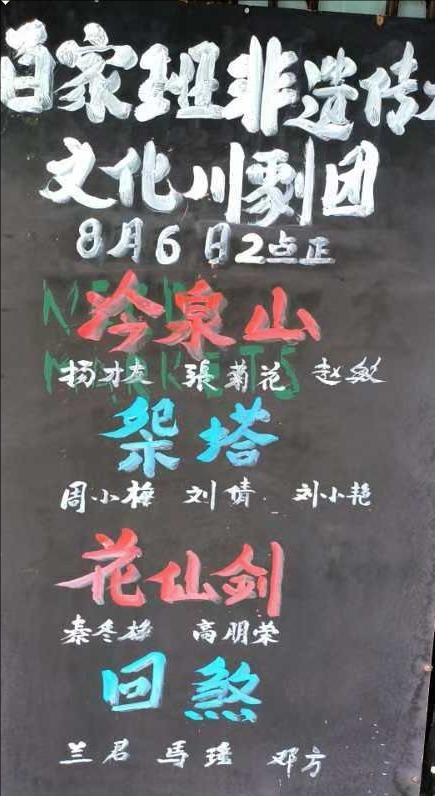 百家班非遗传
文化川剧团
8月6日2点正
冷泉山
NE
MARKETS
杨才友 張菊花 赵敏
梁塔
周小梅 刘倩 刘小艳
花仙剑
秦冬梅 高明荣
回煞
兰君 馬瑶 邓方